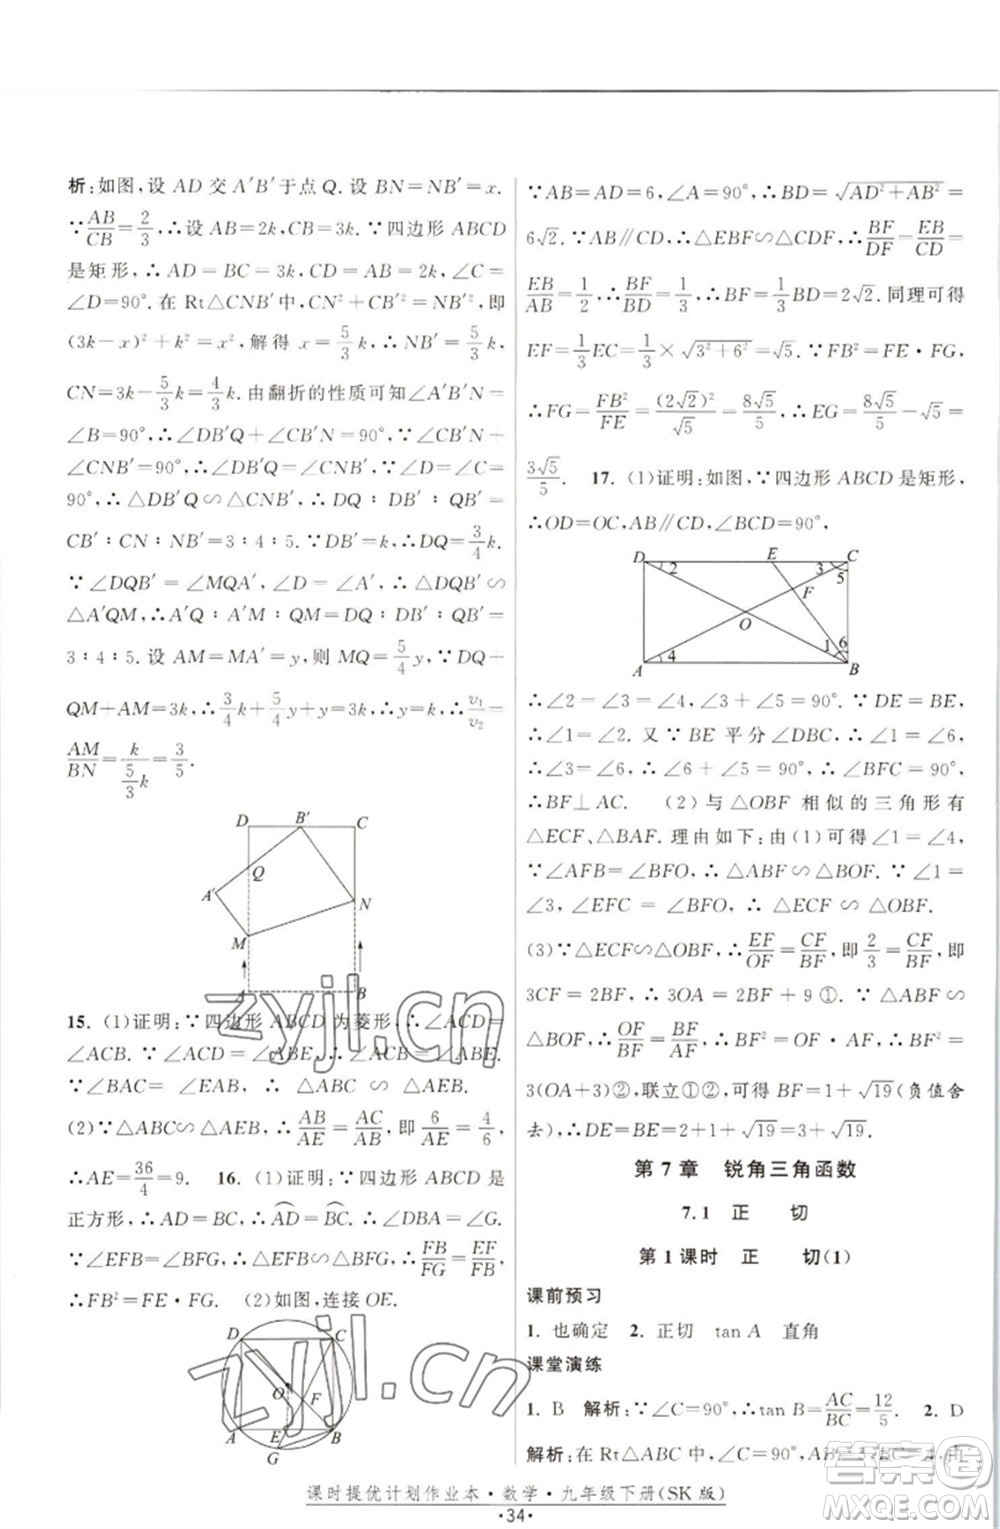 析:如图,设 AD 交 A′B′于点 Q. 设 BN=NB′=x.
∵AB/CB=2/3,∴设 AB=2k,CB=3k. ∵四边形 ABCD
是矩形,∴AD=BC=3k,CD=AB=2k,∠C=
∠D=90°. 在 Rt△CNB′中,CN²+CB′²=NB′²,即
(3k-x)²+k²=x²,解得 x=5/3k,∴NB′=5/3k,
CN=3k-5/3k=4/3k. 由翻折的性质可知∠A′B′N=
∠B=90°,∴∠DB′Q+∠CB′N=90°,∠CB′N+
∠CNB′=90°,∴∠DB′Q=∠CNB′. ∵∠D=∠C=
90°,∴△DB′Q∽△CNB′,∴DQ:DB′:QB′=
CB′:CN:NB′=3:4:5. ∵DB′=k,∴DQ=3/4k.
∵∠DQB′=∠MQA′,∠D=∠A′,∴△DQB′∽
△A′QM,∴A′M:A′Q:QM=DQ:DB′:QB′=
3:4:5. 设 AM=MA′=y,则 MQ=5/4y. ∵DQ+
QM+AM=3k,∴3/4k+5/4y+y=3k,∴y=k,∴v₁/v₂=
AM/BN=k/(5/3k)=3/5.
D B′ C
Q
A′
N
M
A B
15. (1)证明:∵四边形 ABCD 为菱形,∴∠ACD=
∠ACB. ∵∠ACD=∠ABE,∴∠ACB=∠ABE.
∵∠BAC=∠EAB,∴△ABC∽△AEB.
(2)∵△ABC∽△AEB,∴AB/AE=AC/AB,即6/AE=4/6,
∴AE=36/4=9. 16. (1)证明:∵四边形 ABCD 是
正方形,∴AD=BC,∴A͡D=B͡C,∴∠DBA=∠G.
∵∠EFB=∠BFG,∴△EFB∽△BFG,∴FB/FG=EF/FB,
∴FB²=FE·FG. (2)如图,连接 OE.
D C
O F
A E B
G
∵AB=AD=6,∠A=90°,∴BD=√(AD²+AB²)=
6√2. ∵AB∥CD,∴△EBF∽△CDF,∴BF/DF=EB/CD=
EB/AB=1/2,∴BF/BD=1/3,∴BF=1/3BD=2√2. 同理可得
EF=1/3EC=1/3×√(3²+6²)=√5. ∵FB²=FE·FG,
∴FG=FB²/FE=(2√2)²/√5=8√5/5,∴EG=8√5/5-√5=
3√5/5. 17. (1)证明:如图,∵四边形 ABCD 是矩形,
∴OD=OC,AB∥CD,∠BCD=90°,
D E C
2 3 5
F
O
1 6
A 4 B
∴∠2=∠3=∠4,∠3+∠5=90°. ∵DE=BE,
∴∠1=∠2. 又∵BE 平分∠DBC,∴∠1=∠6,
∴∠3=∠6,∴∠6+∠5=90°,∴∠BFC=90°,
∴BF⊥AC. (2)与△OBF 相似的三角形有
△ECF、△BAF. 理由如下:由(1)可得∠1=∠4,
∵∠AFB=∠BFO=90°,∴△ABF∽△BOF. ∵∠1=
∠3,∠EFC=∠BFO=90°,∴△ECF∽△OBF.
(3)∵△ECF∽△OBF,∴EF/OF=CF/BF,即2/3=CF/BF,即
3CF=2BF,∴3OA=2BF+9①. ∵△ABF∽
△BOF,∴OF/BF=BF/AF,∴BF²=OF·AF,∴BF²=
3(OA+3)②,联立①②,可得 BF=1+√19(负值舍
去),∴DE=BE=2+1+√19=3+√19.
第 7 章 锐角三角函数
7.1 正 切
第 1 课时 正 切(1)
课前预习
1. 也确定 2. 正切 tan A 直角
课堂演练
1. B 解析:∵∠C=90°,∴tan B=AC/BC=12/5. 2. D
解析:在 Rt△ABC 中,∠C=90°,
课时提优计划作业本·数学·九年级下册(SK 版)
·34·
zyjl.cn
zyjl.cn
答案圈
MXQE.COM